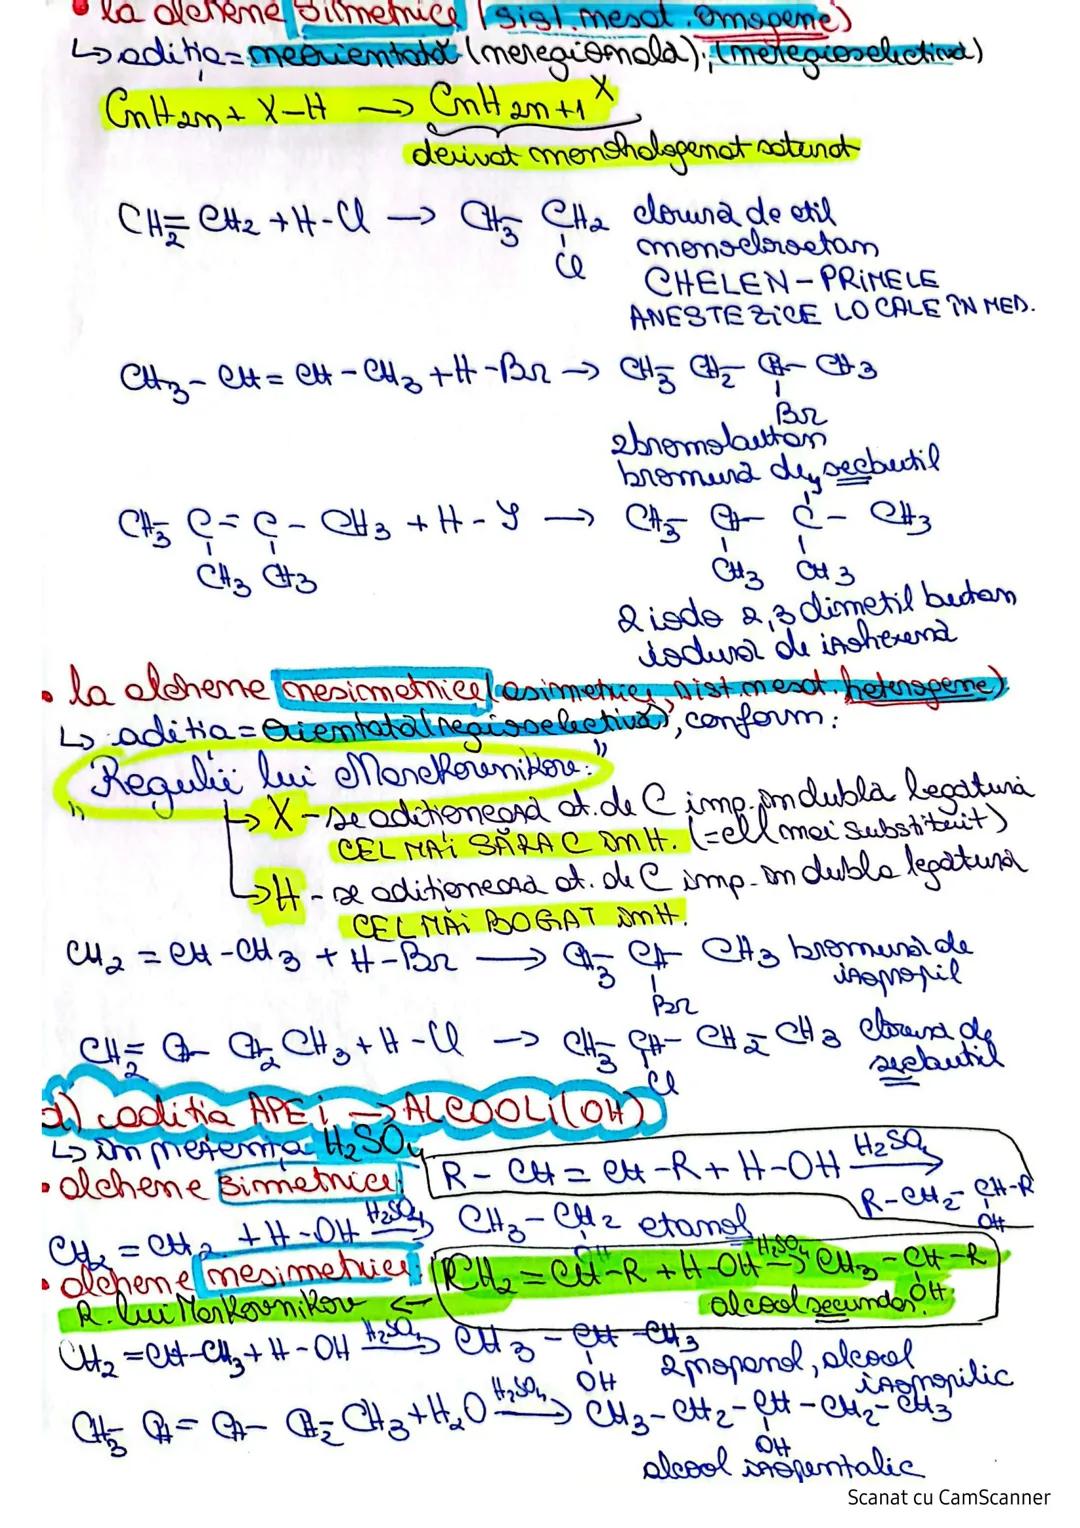 • la alchene simetrice (sist. mesot. omogene)
↳ adiția = neorientată (neregională); (neregioselectivă)
CnH2n + X-H → CnH2n+1 X
derivat monohalogenat saturat
CH2 = CH2 + H-Cl → CH3 - CH2 clorură de etil
Cl monocloroetan
CHELEN - PRIMELE
ANESTEZICE LOCALE ÎN MED.
CH3 - CH = CH - CH3 + H-Br → CH3 - CH2 - CH - CH3
Br
2 bromobutan
bromură de secbutil
CH3 - C = C - CH3 + H - I → CH3 - CH - C - CH3
I
CH3 CH3 CH3 CH3
2 iodo 2,3 dimetil butan
iodură de
• la alchene nesimetrice (asimetrice, sist. mesot. heterogene)
↳ adiția = orientată (regioselectivă), conform:
"Regulii lui Markovnikov:"
↳ X - se adiționează at. de C imp. în dubla legătură
CEL MAI SĂRAC în H. (= cel mai substituit)
↳ H - se adiționează at. de C imp. în dubla legătură
CEL MAI BOGAT în H.
CH2 = CH - CH3 + H-Br → CH3 - CH - CH3 bromură de
Br izopropil
CH2 = CH - CH2 - CH3 + H-Cl → CH3 - CH - CH2 - CH3 clorură de
Cl secbutil
d) aditia APEI → ALCOOLI (OH)
↳ în prezența H2SO4
• alchene simetrice: R - CH = CH - R + H-OH H2SO4→ R-CH2-CH-R
OH
CH2 = CH2 + H-OH H2SO4→ CH3 - CH2 etanol
OH
• alchene nesimetrice: CH2 = CH-R + H-OH H2SO4→ CH3 - CH - R
OH
R. lui Markovnikov ← alcool secundar.
CH2 = CH-CH3 + H-OH H2SO4→ CH3 - CH - CH3
OH 2 propanol, alcool
izopropilic
CH3 - CH = CH - CH2 - CH3 + H2O H2SO4→ CH3 - CH2 - CH - CH2 - CH3
OH
alcool izopentalic
Scanat cu CamScanner